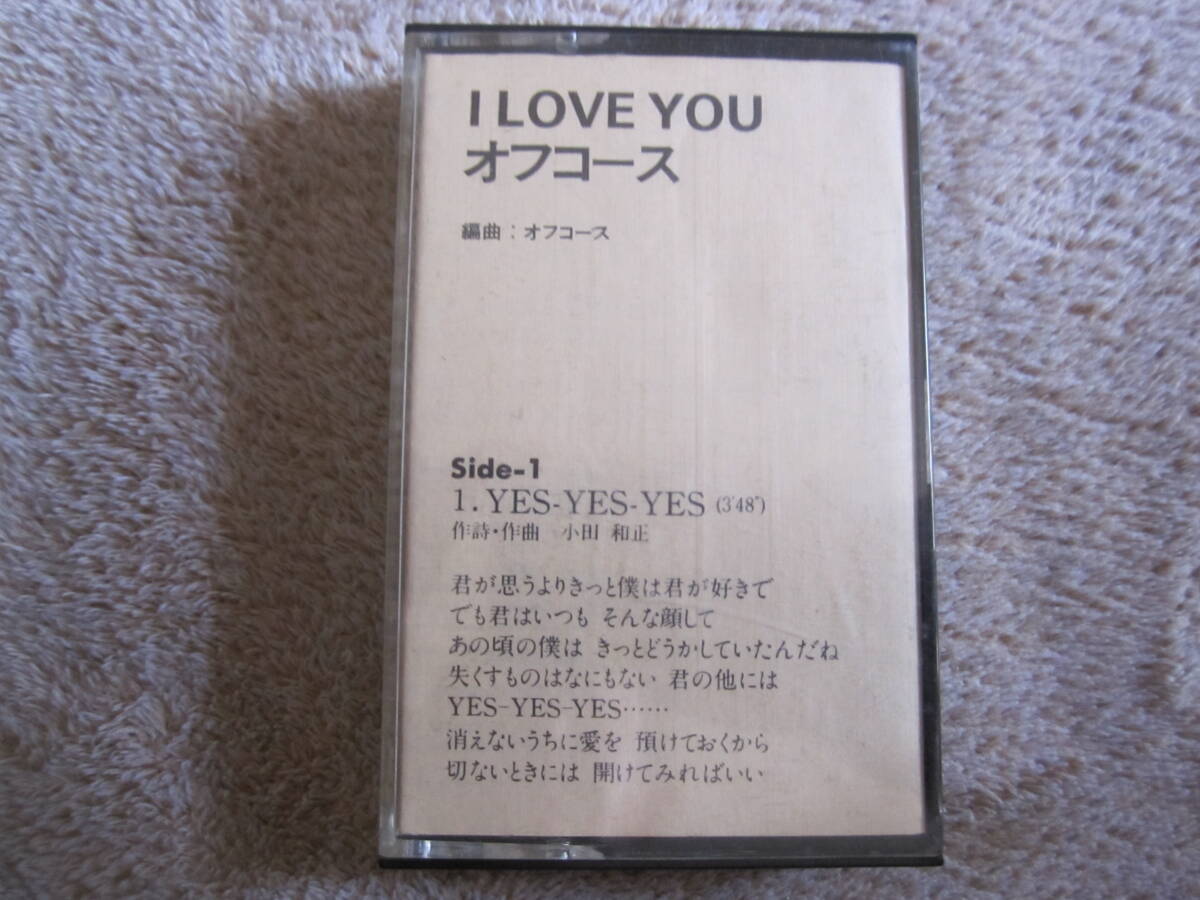 I LOVE YOU
オフコース
編曲：オフコース
Side-1
1. YES-YES-YES (3'48")
作詩・作曲　小田 和正
君が思うよりきっと僕は君が好きで
でも君はいつも そんな顔して
あの頃の僕は きっとどうかしていたんだね
失くすものはなにもない 君の他には
YES-YES-YES……
消えないうちに愛を 預けておくから
切ないときには 開けてみればいい